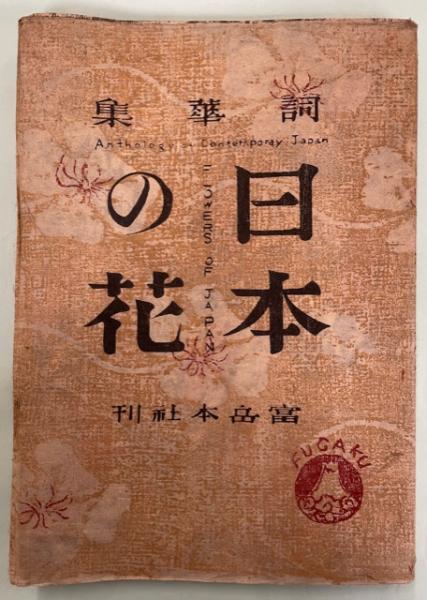 詞華集
Anthology of Contemporay Japan
日本
FLOWERS OF JAPAN
の花
富岳本社刊
FUGAKU